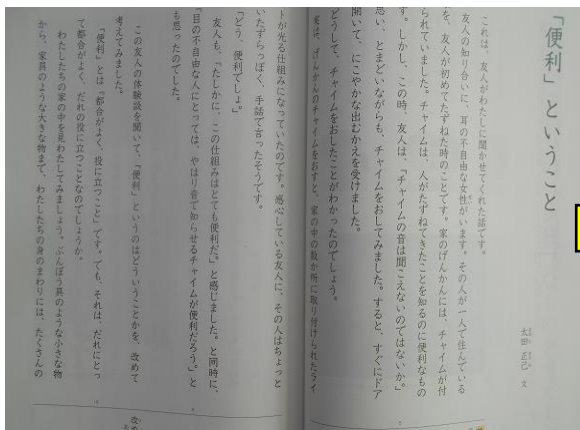 「便利」ということ
太田 正己 文
これは、友人がわたしに聞かせてくれた話です。
友人の知り合いに、耳の不自由な女性がいます。その人が一人で住んでいる
家を、友人が初めてたずねた時のことです。家のげんかんには、チャイムが付
けられていました。チャイムは、人がたずねてきたことを知るのに便利なもの
です。しかし、この時、友人は、「チャイムの音は聞こえないのではないか。」
と思い、とまどいながらも、チャイムをおしてみました。すると、すぐにドア
が開いて、にこやかな出むかえを受けました。
どうして、チャイムをおしたことがわかったのでしょう。
実は、げんかんのチャイムをおすと、家の中の数か所に取り付けられたライ
トが光る仕組みになっていたのです。感心している友人に、その人はちょっと
いたずらっぽく、手話で言ったそうです。
「どう、便利でしょ。」
友人も、「たしかに、この仕組みはとても便利だ。」と感じました。と同時に、
「目の不自由な人にとっては、やはり音で知らせるチャイムが便利だろう。」と
も思ったのでした。
この友人の体験談を聞いて、「便利」というのはどういうことかを、改めて
考えてみました。
「便利」とは「都合がよく、役に立つこと」です。でも、それは、だれにとっ
て都合がよく、だれの役に立つことなのでしょうか。
わたしたちの家の中を見わたしてみましょう。ぶんぼう具のような小さな物
から、家具のような大きな物まで、わたしたちの身のまわりには、たくさんの